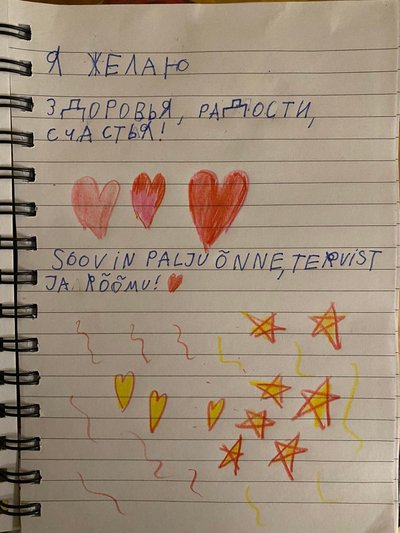 Я ЖЕЛАЮ
ЗДОРОВЬЯ, РАДОСТИ,
СЧАСТЬЯ!
SOOVIN PALJU ÕNNE, TERVIST
JA RÕÕMU!